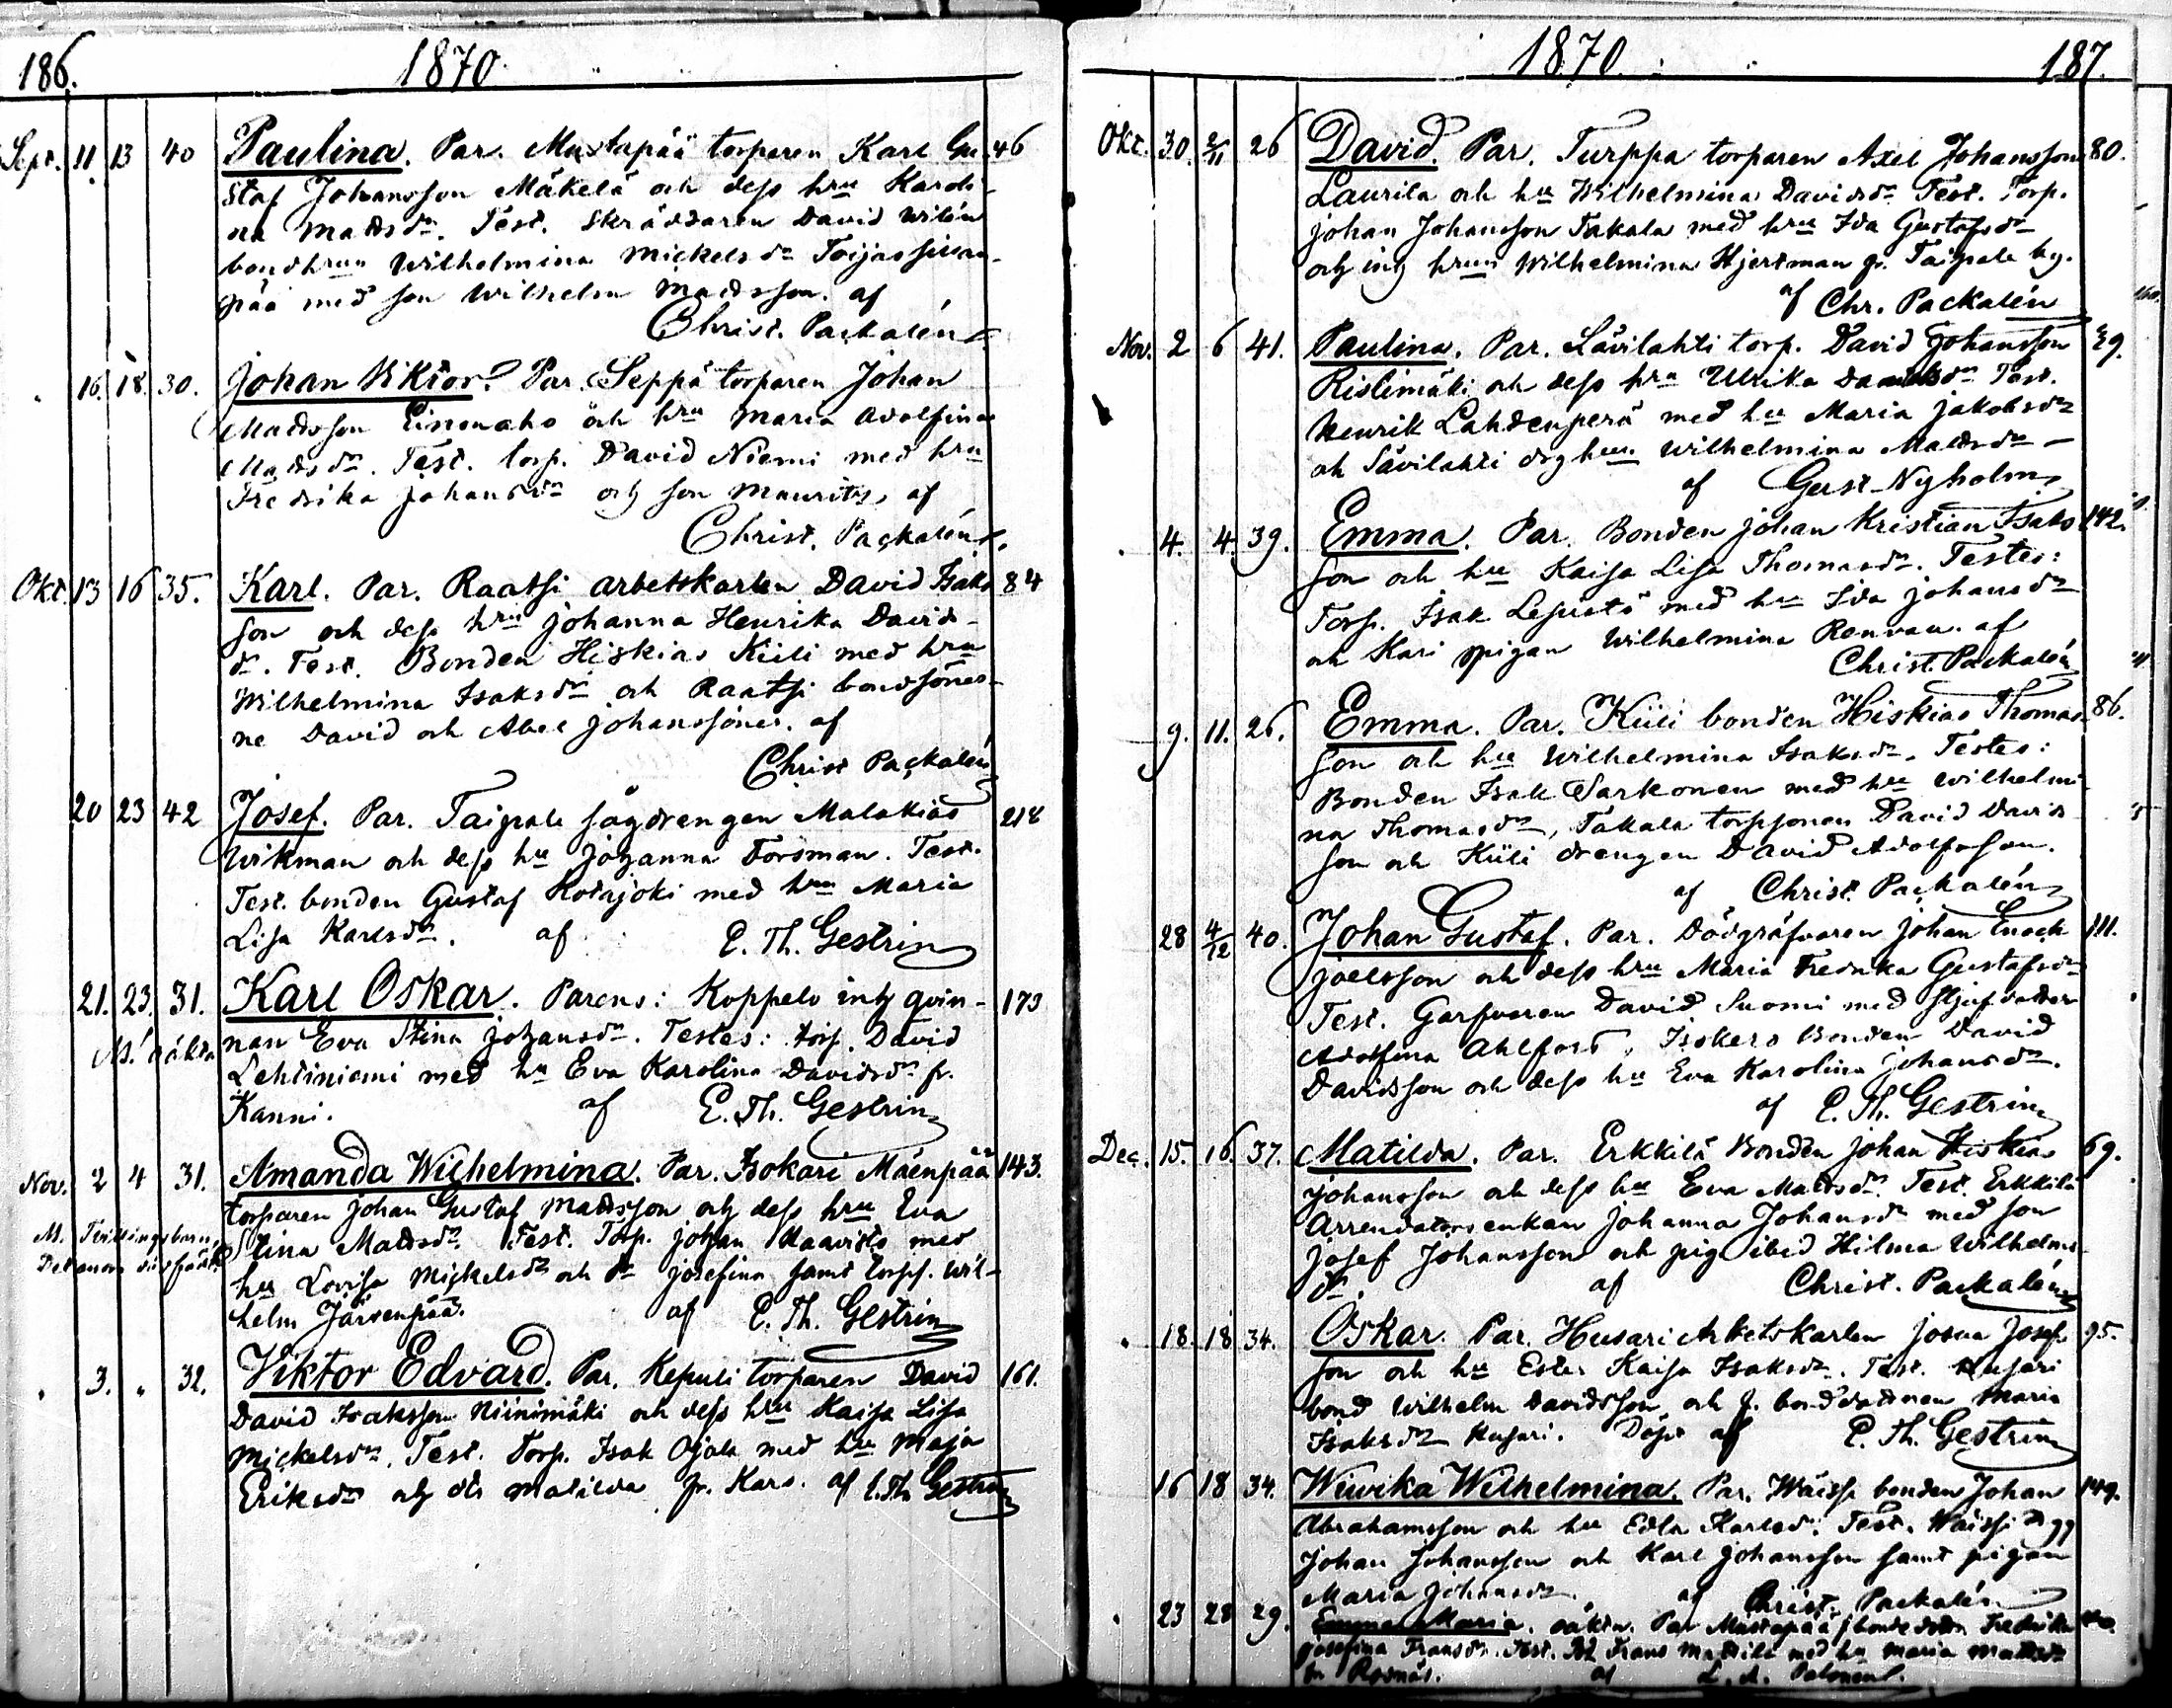 186. 1870.
Sept. 11. 13 40 Paulina. Par. Mustapää torparen Karl Gu- 46
staf Johansson Mäkelä och dess hru Karoli-
na Matsdr. Test. Skräddaren David Wilén
bondhrun Wilhelmina Mickelsdr
pää med son Wilhelm Matsson. af
Christ. Packalén
16. 18. 30. Johan Viktor. Par. Seppä torparen Johan
Mattsson och hru Maria Adolfina
Matsdr. Test. torp. David Niemi med hru
Fredrika Johansdr och son Mauritz, af
Christ. Packalén.
Okt. 13 16 35. Karl. Par. Raatsi arbetskarlen David Isaks 84
son och dess hru Johanna Henrika Davids-
dr. Test. Bonden Hiskias Kiili med hru
Wilhelmina Isaksdr och Raatsi bondsöner-
ne David och Abel Johanssöner. af
Christ Packalén
20 23 42 Josef. Par. Taipale sågdrengen Malakias 218
Wikman och dess hu Johanna Forsman. Test.
Test. bonden Gustaf Kotajoki med hru Maria
Lisa Karlsdr. af E. Th. Gestrin
21. 23. 31. Karl Oskar. Parens: Koppelo inh qvin- 173
oäkta nan Eva Stina Johansdr. Testes: torp. David
Lehtiniemi med hu Eva Karolina Davidsdr fr.
Kanni. af E. Th. Gestrin
Nov. 2 4 31. Amanda Wilhelmina. Par. Isokari Mäenpää 143.
torparen Johan Gustaf Matsson och dess hru Eva
M. Tvillingsbarn. Stina Matsdr. Test. Torp. Johan Haavisto med
Det andra dödfödt hu Lovisa Mickelsdr och dr Josefina samt torps. Wil-
helm Järvenpää. af E. Th. Gestrin
" 3. " 32. Viktor Edvard. Par. Repuli torparen David 161.
David Isaksson Niinimäki och dess hru Kaisa Lisa
Mickelsdr. Test. Torp. Isak Ojala med hru Maja
Eriksdr och dr Matilda fr. Karo. af E. Th. Gestrin
1870. 187.
Okt. 30. 2/11 26 David. Par. Turppa torparen Axel Johansson 80.
Laurila och hu Wilhelmina Davidsdr Test. Torp.
Johan Johansson Takala med hru Ida Gustafsdr
och inh hrun Wilhelmina Hjertman fr. Taipale by.
af Chr. Packalén
Nov. 2 6 41. Paulina. Par. Sävilahti torp. David Johansson 39.
Ristimäki och dess hru Ulrika Test.
Henrik Lahdenperä med hu Maria Jakobsdr
och Sävilahti Wilhelmina Matsdr
af Gust. Nyholm
" 4. 4. 39. Emma. Par. Bonden Johan Kristian Isaks 142.
son och hru Kaisa Lisa Thomasdr. Testes:
Torp. Isak med hu Ida Johansdr
och Kari pigan Wilhelmina af
Christ. Packalén
9. 11. 26. Emma. Par. Kiili bonden Hiskias Thomas 86.
son och hu Wilhelmina Isaksdr. Testes:
Bonden Isak Sarkonen med hu Wilhelmi
na Thomasdr, Takala torpsonen David Davids
son och Kiili drengen David Adolfsson.
af Christ. Packalén
28 4/12 40. Johan Gustaf. Par. Dödgräfvaren Johan Enoch 111.
Joelsson och dess hru Maria Fredrika Gustafsdr
Test. Garfvaren David Suomi med styfdotter
Adolfina Ahlfors, Isokero Bonden David
Davidsson och dess hu Eva Karolina Johansdr.
af E. Th. Gestrin
Dec. 15. 16. 37. Matilda. Par. Erkkilä Bonden Johan Hiskias 69.
Johansson och dess hu Eva Matsdr. Test. Erkkilä
Arrendatorsenkan Johanna Johansdr med son
Josef Johansson och pig. ibid Hilma Wilhelms-
dr. af Christ. Packalén
" 18. 18 34. Oskar. Par. Husari Arbetskarlen Josua Josefs 95.
son och hu Ester Kaisa Isaksdr. Test. Husari
bond Wilhelm Davidsson och f. bonddottren Maria
Isaksdr Husari. Döpt af E. Th. Gestrin
16 18 34. Wiwika Wilhelmina. Par. Wäissi bonden Johan 149.
Abrahamsson och hu Edla Karlsdr. Test. Waissi dgg
Johan Johansson och Karl Johansson samt pigan
Maria Johansdr. af Christ. Packalén
" 23 28 29. Emma Maria. oäkta. Par Mustapää bondedottr. Fredrika
Josefina Fransdr. Test. Frans Mattila med hu Maria Mattsdr
fr. af L. A. Palonen.